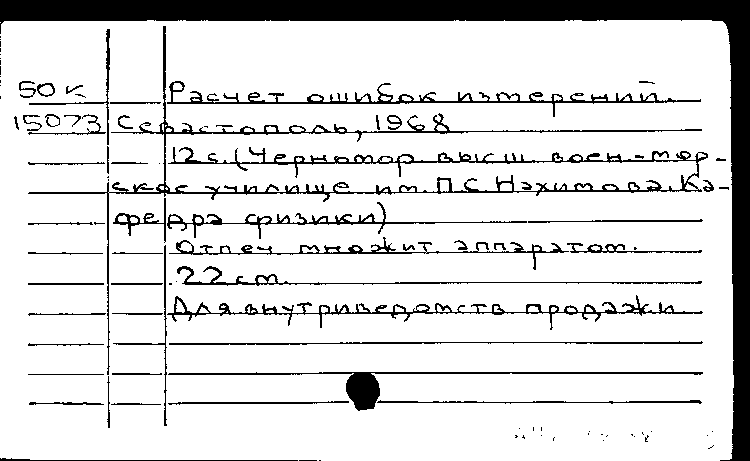 50к Расчет ошибок измерений.
15073 Севастополь, 1968
12 с. (Черномор. высш. воен.-мор-
ское училище им. П.С. Нахимова. Ка-
федра физики)
Отпеч. множит. аппаратом.
22 см.
Для внутриведомств. продажи